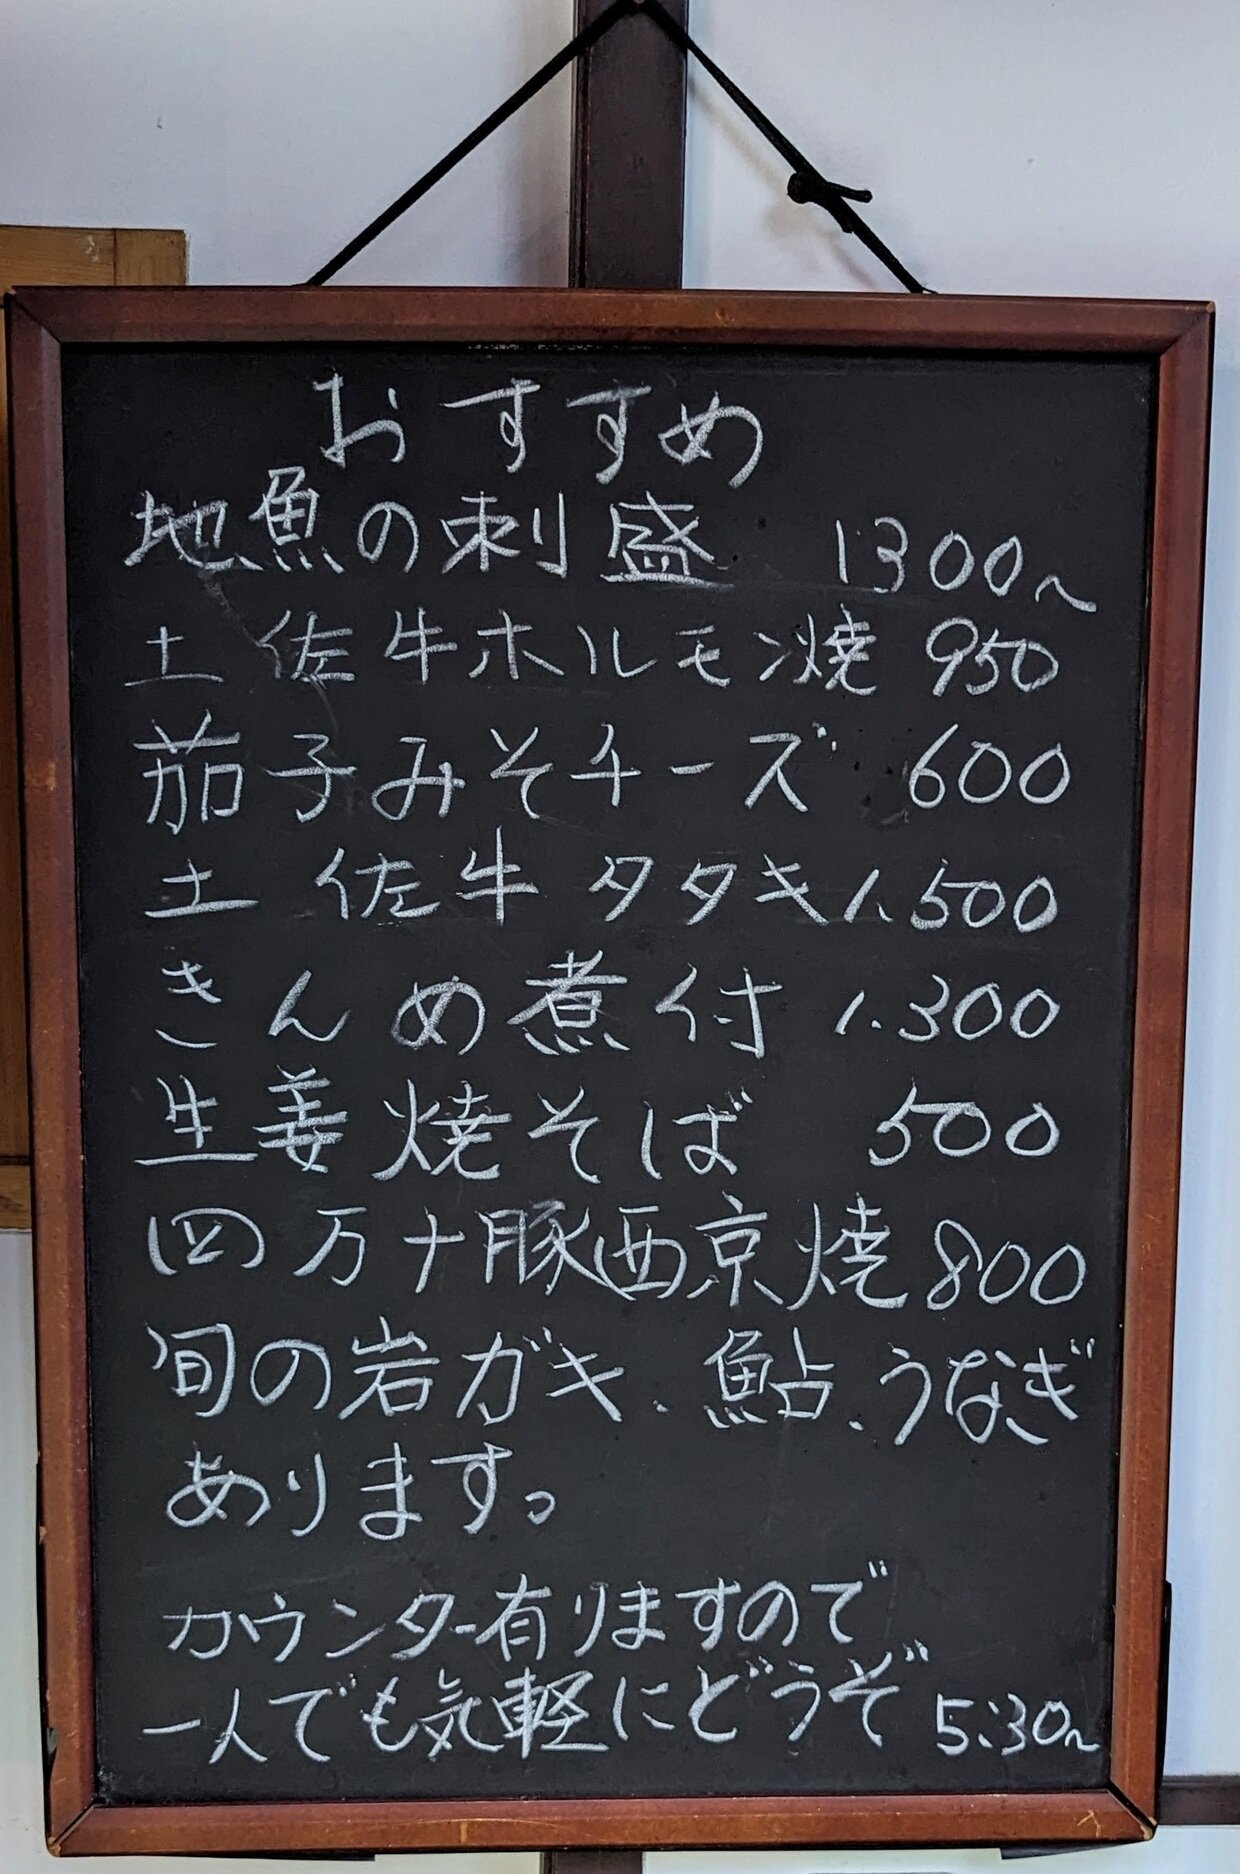 おすすめ
地魚の刺盛 1300~
土佐牛ホルモン焼 950
茄子みそチーズ 600
土佐牛タタキ 1.500
きんめ煮付 1.300
生姜焼そば 500
四万十豚西京焼 800
旬の岩ガキ、鮎、うなぎ
あります。
カウンター有りますので
一人でも気軽にどうぞ 5:30~